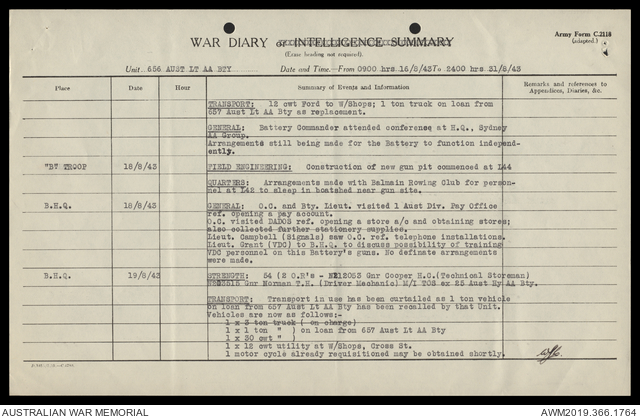 Army Form C.2118
(adapted.)
WAR DIARY or INTELLIGENCE SUMMARY
(Erase heading not required).
Unit 656 AUST LT AA BTY Date and Time.—From 0900 hrs 16/8/43 To 2400 hrs 31/8/43
Place Date Hour Summary of Events and Information Remarks and references to Appendices, Diaries, &c.
TRANSPORT: 12 cwt Ford to W/Shops; 1 ton truck on loan from
657 Aust Lt AA Bty as replacement.
GENERAL: Battery Commander attended conference at H.Q., Sydney
AA Group.
Arrangements still being made for the Battery to function independ-
ently.
"B" TROOP 18/8/43 FIELD ENGINEERING: Construction of new gun pit commenced at L44
QUARTERS: Arrangements made with Balmain Rowing Club for person-
nel at L42 to sleep in boatshed near gun site.
B.H.Q. 18/8/43 GENERAL: O.C. and Bty. Lieut. visited 1 Aust Div. Pay Office
ref. opening a pay account.
O.C. visited DADOS ref. opening a store a/c and obtaining stores;
also collected further stationery supplies.
Lieut. Campbell (Signals) saw O.C. ref. telephone installations.
Lieut. Grant (VDC) to B.H.Q. to discuss possibility of training
VDC personnel on this Battery's guns. No definate arrangements
were made.
B.H.Q. 19/8/43 STRENGTH: 54 (2 O.R's - Gnr Cooper H.C.(Technical Storeman)
Gnr Norman T.H. (Driver Mechanic) M/I TOS ex 25 Aust Hy AA Bty.
TRANSPORT: Transport in use has been curtailed as 1 ton vehicle
on loan from 657 Aust Lt AA Bty has been recalled by that Unit.
Vehicles are now as follows:
1 x 3 ton truck ( on charge)
1 x 1 ton " ) on loan from 657 Aust Lt AA Bty
1 x 30 cwt " )
1 x 12 cwt utility at W/Shops, Cross St.
1 motor cycle already requisitioned may be obtained shortly.
AUSTRALIAN WAR MEMORIAL AWM2019.366.1764